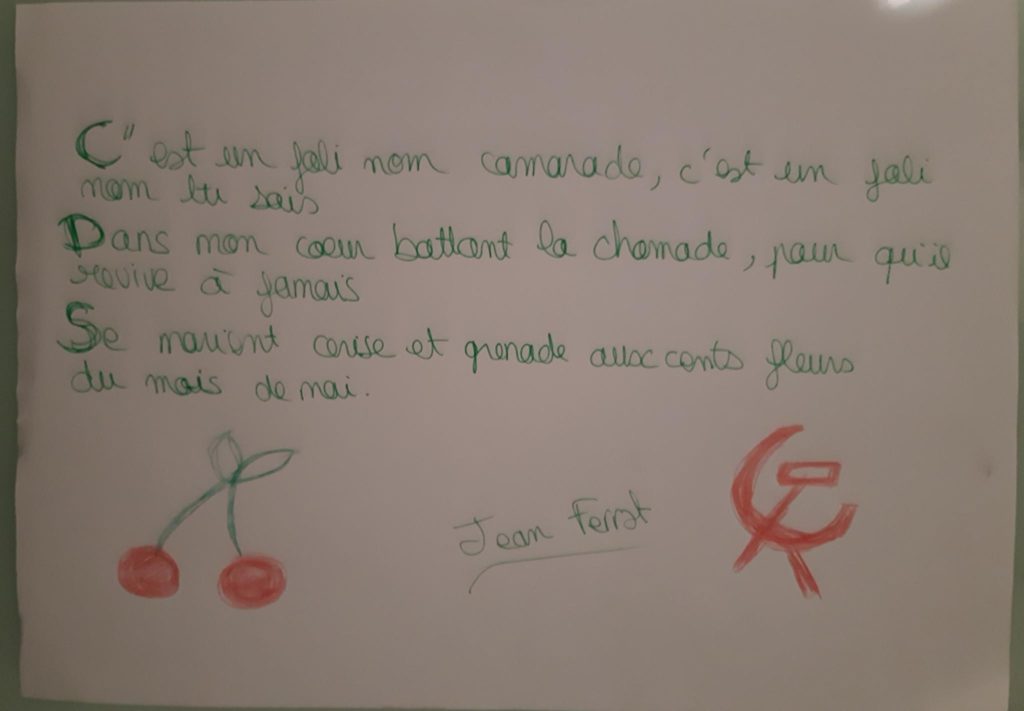 C'' est un joli nom camarade, c'est un joli
nom tu sais
Dans mon coeur battant la chamade, pour qu'il
revive à jamais
Se marient cerise et grenade aux cents fleurs
du mois de mai.
Jean Ferrat